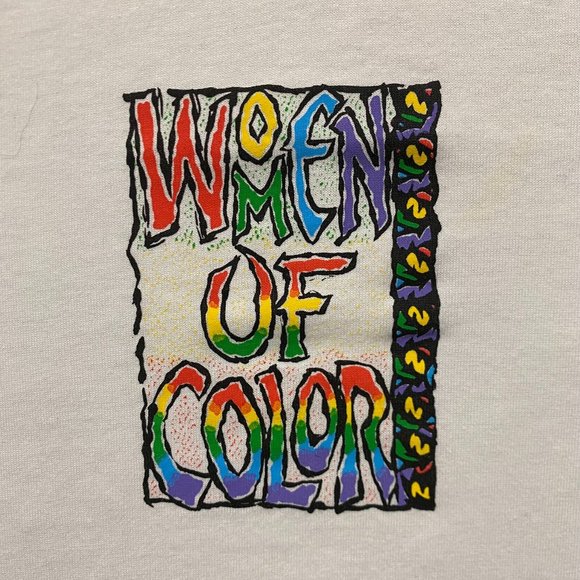 WOMEN
OF
COLOR